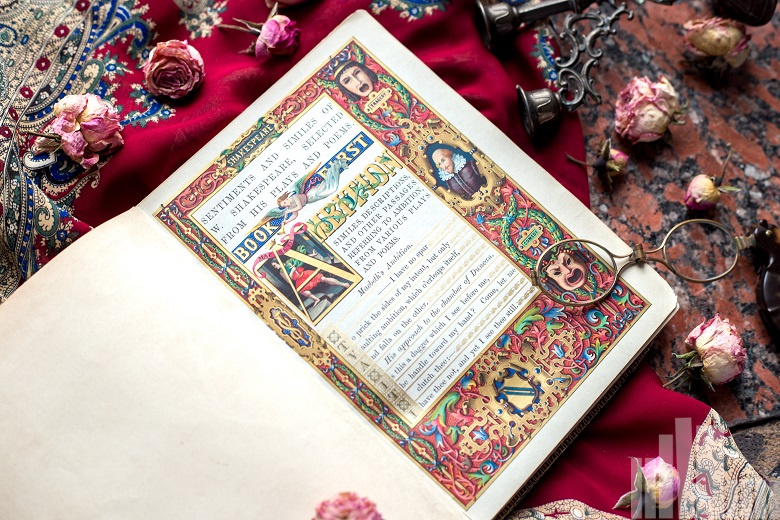 SHAKESPEARE
SENTIMENTS AND SIMILES OF
W. SHAKESPEARE, SELECTED
FROM HIS PLAYS AND POEMS.
BOOK FIRST
AMBITION
SIMILES, DESCRIPTIONS,
AND OTHER PASSAGES
REFERRING TO AMBITION,
FROM VARIOUS PLAYS
AND POEMS.
Macbeth's Ambition.
I have no spur
o prick the sides of my intent, but only
aulting ambition, which o'erleaps itself,
nd falls on the other.
His approach to the chamber of Duncan.
s this a dagger which I see before me,
he handle toward my hand? Come, let me
clutch thee:—
have thee not, and yet I see thee still.